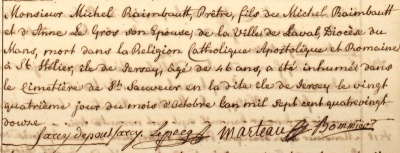 Monsieur Michel Raimbault, Prêtre, fils du Michel Raimbault
et d'Anne Le Gros son Epouse, de la Ville de Laval, Diocèse du
Mans, mort dans la Religion Catholique Apostolique et Romaine
à St Hélier, île de Jersey, âgé de 46 ans, a été inhumé dans
le Cimetière de St Sauveur en la dite île de Jersey le vingt
quatrième jour du mois d'Octobre l'an mil sept cent quatrevingt
douze
Lepecq Marteau